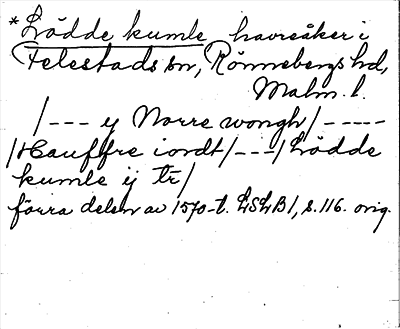 *Lödde kumle, havreåker i
Felestads sn, Rönnebergs hd,
Malm. l.
/--- y Norre wongh/-----
/Hauffre iordt/---/Lödde
kumle ij tr/
förra delen av 1570-t. LSLB1, s. 116. orig.